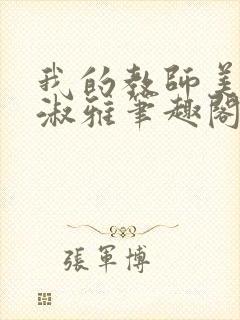 我的教師美
淑雅筆趣閣
張軍博